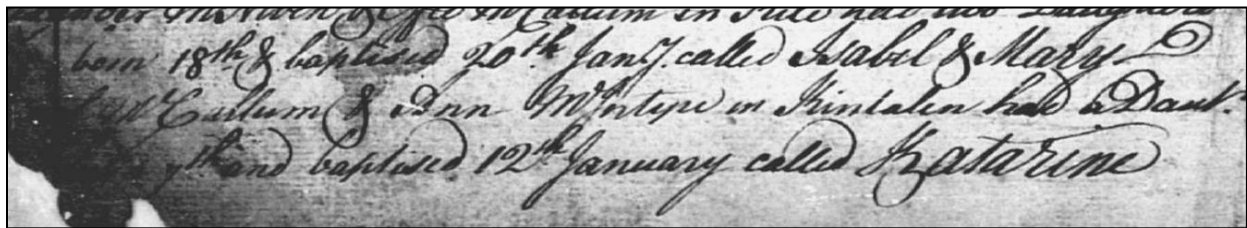 McNiven & McCallum in had two Daughters
born 18th & baptised 20th Jany. called Isabel & Mary
McCallum & Ann McIntyre in Kintalen had a Daut.
7th and baptised 12th January called Katarine